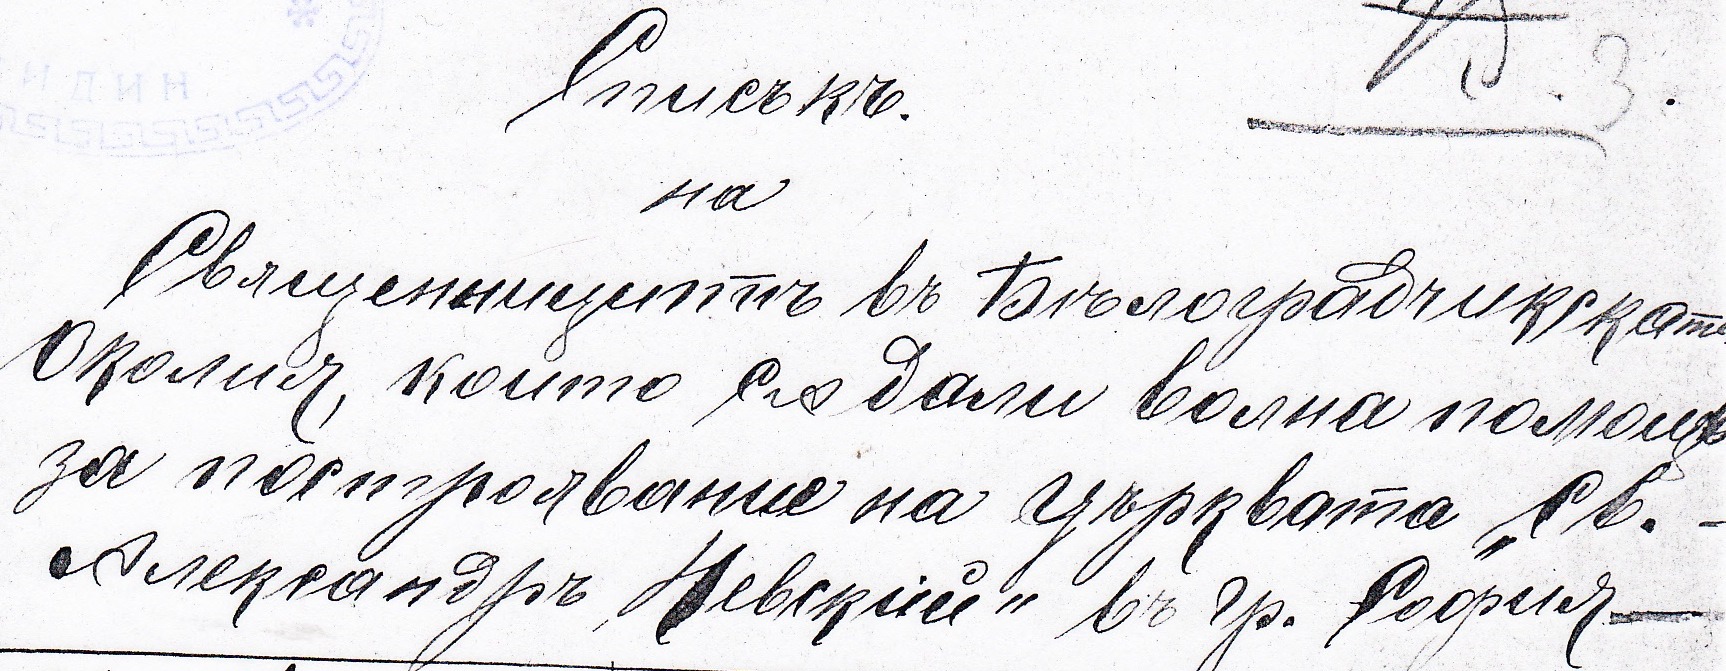 ИДИН
3.
Списъкъ.
на
Священницитѣ въ Бѣлоградчикската
Околия, които сѫ дали волна помощь
за построявание на Църквата „Св. -
Александръ Невский" въ гр. София —